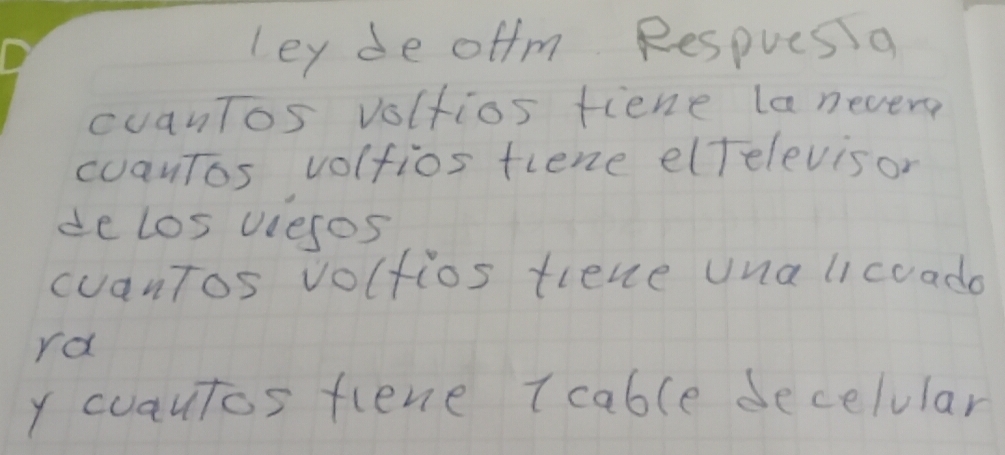 ley de oHm Respuesta
cuanTos voltios tiene la nevera
cuanTos voltios tiene el Televisor
de los viejos
cuanTos voltios tiene una licuado
ra
y cuanTos tiene 1 cable de celular